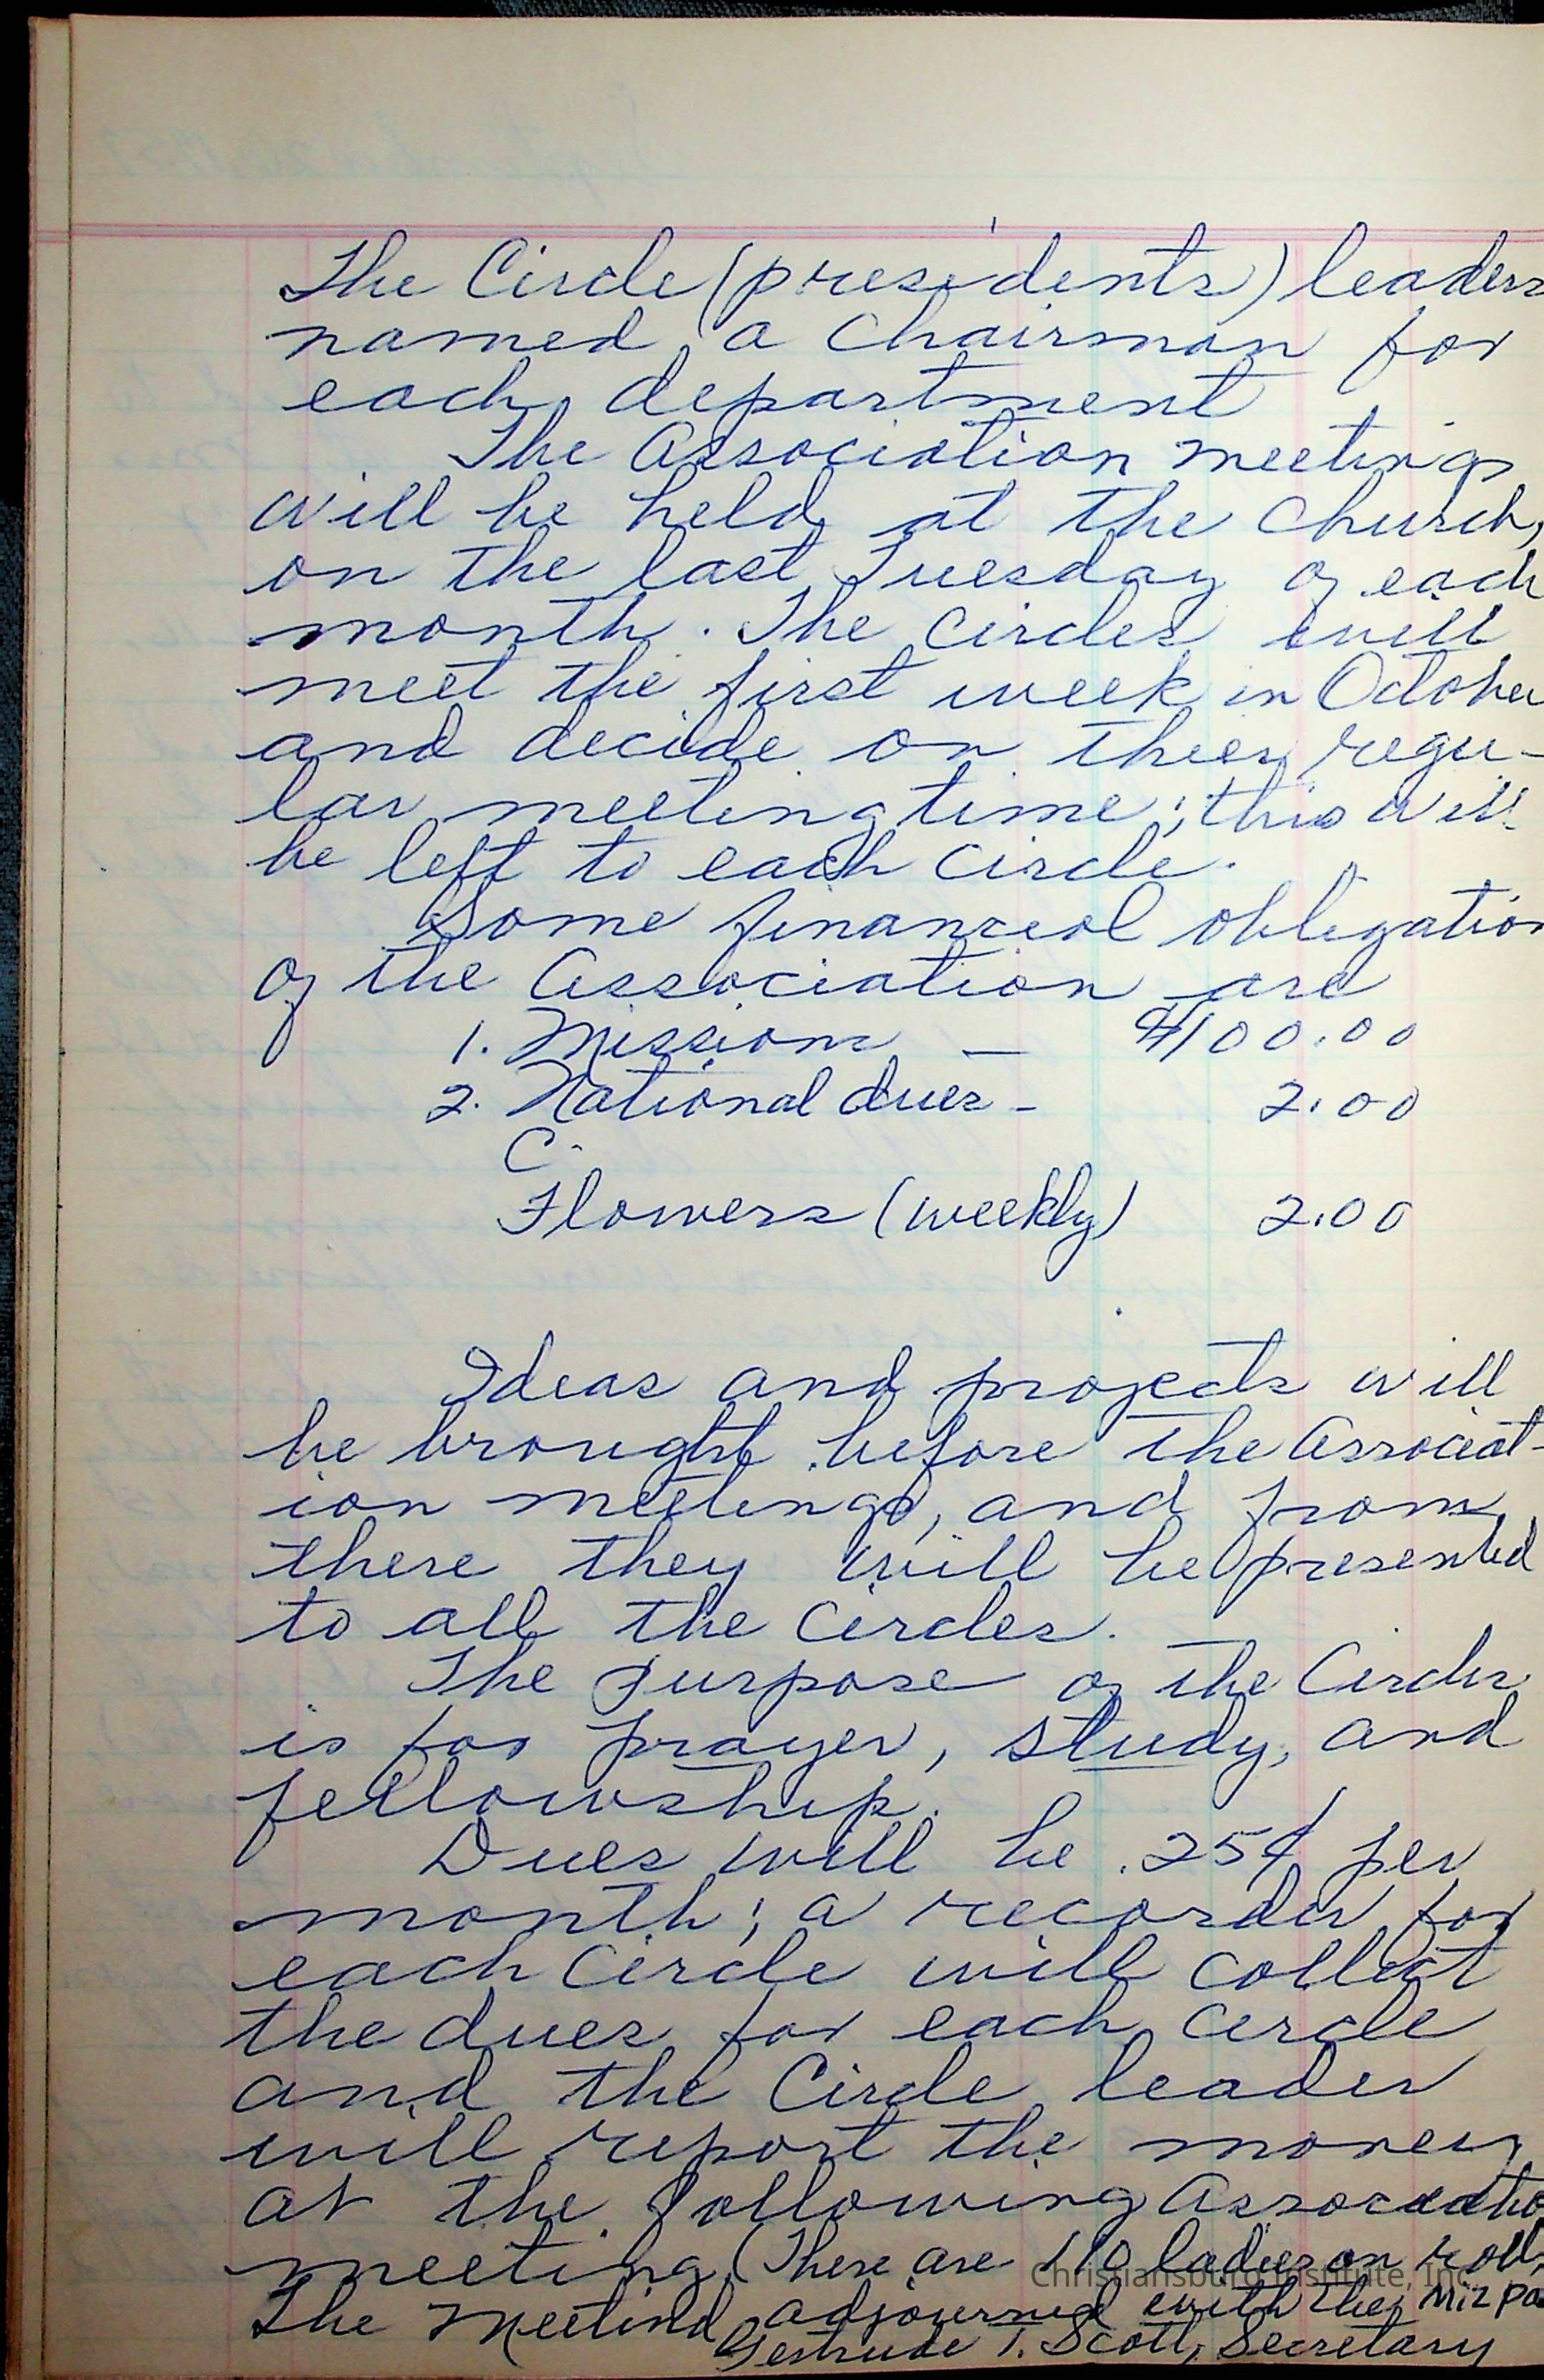 The Circle (presidents) leaders
named a Chairman for
each department
The Association meetings
will be held at the Church,
on the last Tuesday of each
month. The Circles will
meet the first week in October
and decide on their regu-
lar meeting time; this will
be left to each Circle.
Some financial obligation
of the Association are
1. Missions — $100.00
2. National dues - 2.00
C.
Flowers (weekly) 2.00
Ideas and projects will
be brought before the Associat-
ion meetings, and from
there they will be presented
to all the Circles.
The purpose of the Circles
is for prayer, study, and
fellowship.
Dues will be .25¢ per
month; a recorder for
each Circle will collect
the dues for each Circle
and the Circle leader
will report the money
at the following Associatio
meeting. (There are 110 ladies on roll,
Christiansburg Institute, Inc.
The Meeting adjourned with the Mizpa
Gertrude T. Scott, Secretary